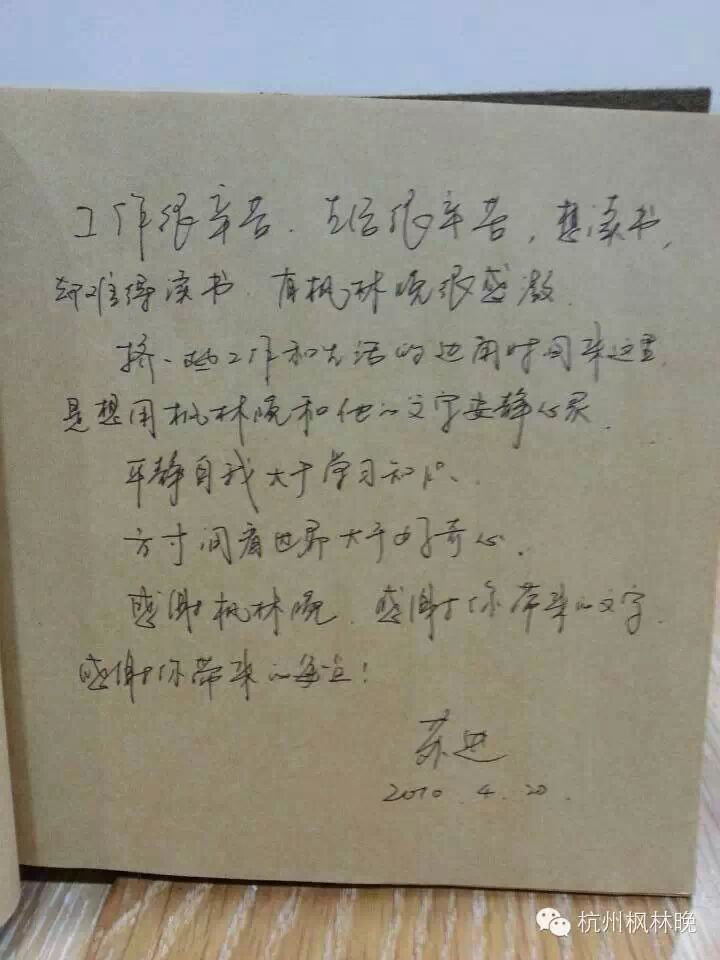 工作很辛苦、生活很辛苦，想读书，
却难得读书。有枫林晚很感激。
挤一些工作和生活的边角时间来这里
是想用枫林晚和他的文字安静心灵。
平静自我大于学习知识、
方寸间看世界大于好奇心。
感谢枫林晚、感谢你带来的文字、
感谢你带来的
苏
2010.4.20.
杭州枫林晚